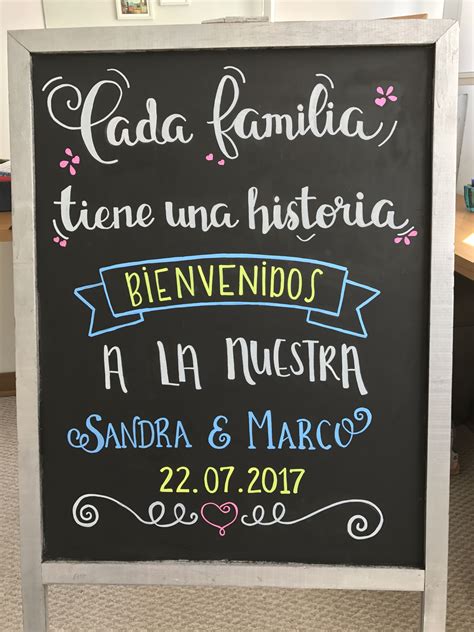 Cada familia,
tiene una historia
BIENVENIDOS
A LA NUESTRA
SANDRA & MARCO
22.07.2017